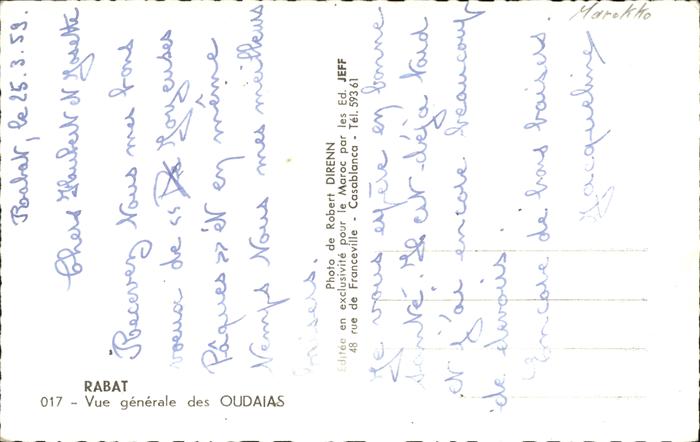 Rabat, le 25.3.59.
Chers Hubert et Josette
Recevez tous mes bons
voeux de "Joyeuses
Pâques" et en même
temps tous mes meilleurs
baisers.
Je vous espère en bonne
santé. Il est déjà tard
et j'ai encore beaucoup
de devoirs.
Encore de bons baisers.
Jacqueline
Marokko
Photo de Robert DIRENN
Editée en exclusivité pour le Maroc par les Ed. JEFF
48 rue de Franceville - Casablanca - Tél. 593 61
RABAT
017 - Vue générale des OUDAIAS